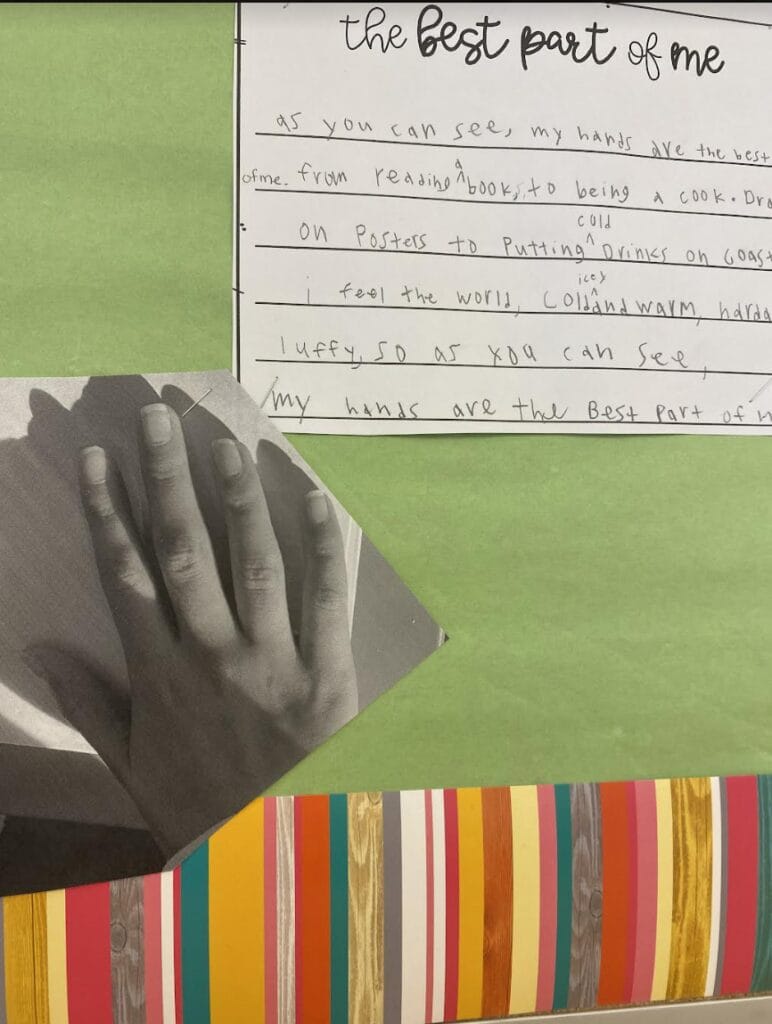 the best part of me
as you can see, my hands are the best
of me. from reading a book, to being a cook. Dra
on Posters to Putting cold Drinks on coast
i feel the world, cold icey and warm, hard a
luffy, so as you can see,
my hands are the Best Part of m